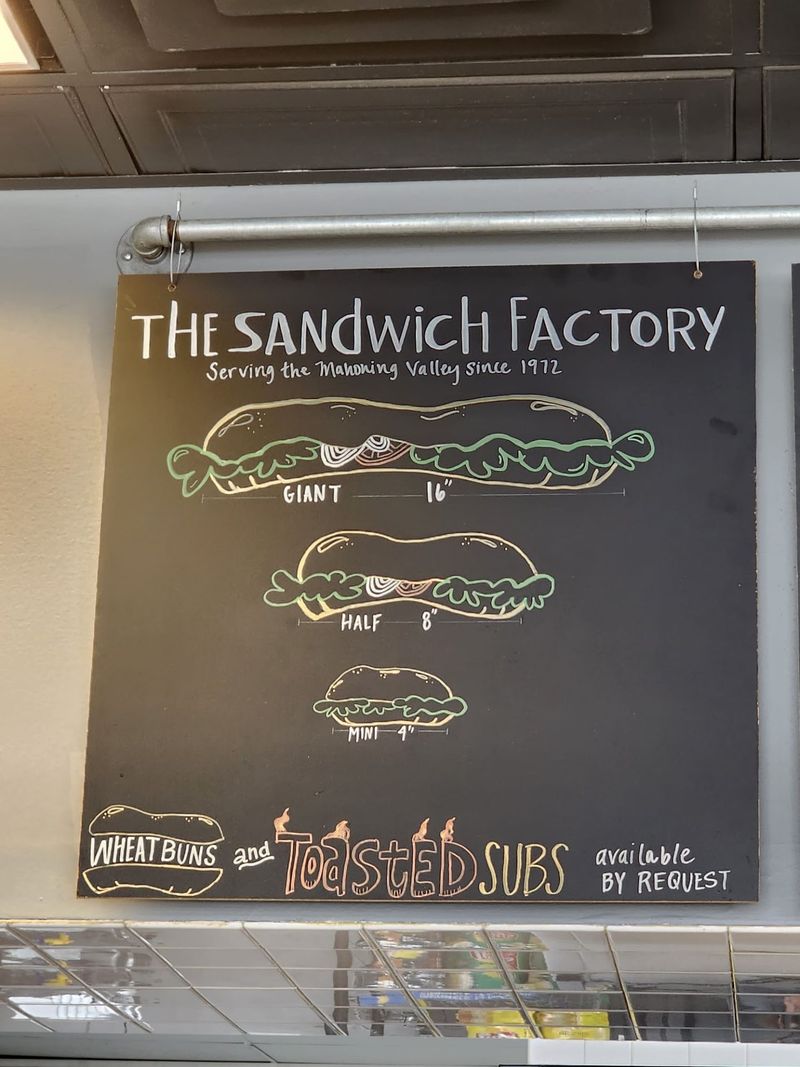 THE SANDWICH FACTORY
Serving the Mahoning Valley since 1972
GIANT 16"
HALF 8"
MINI 4"
WHEAT BUNS and TOASTED SUBS available
BY REQUEST